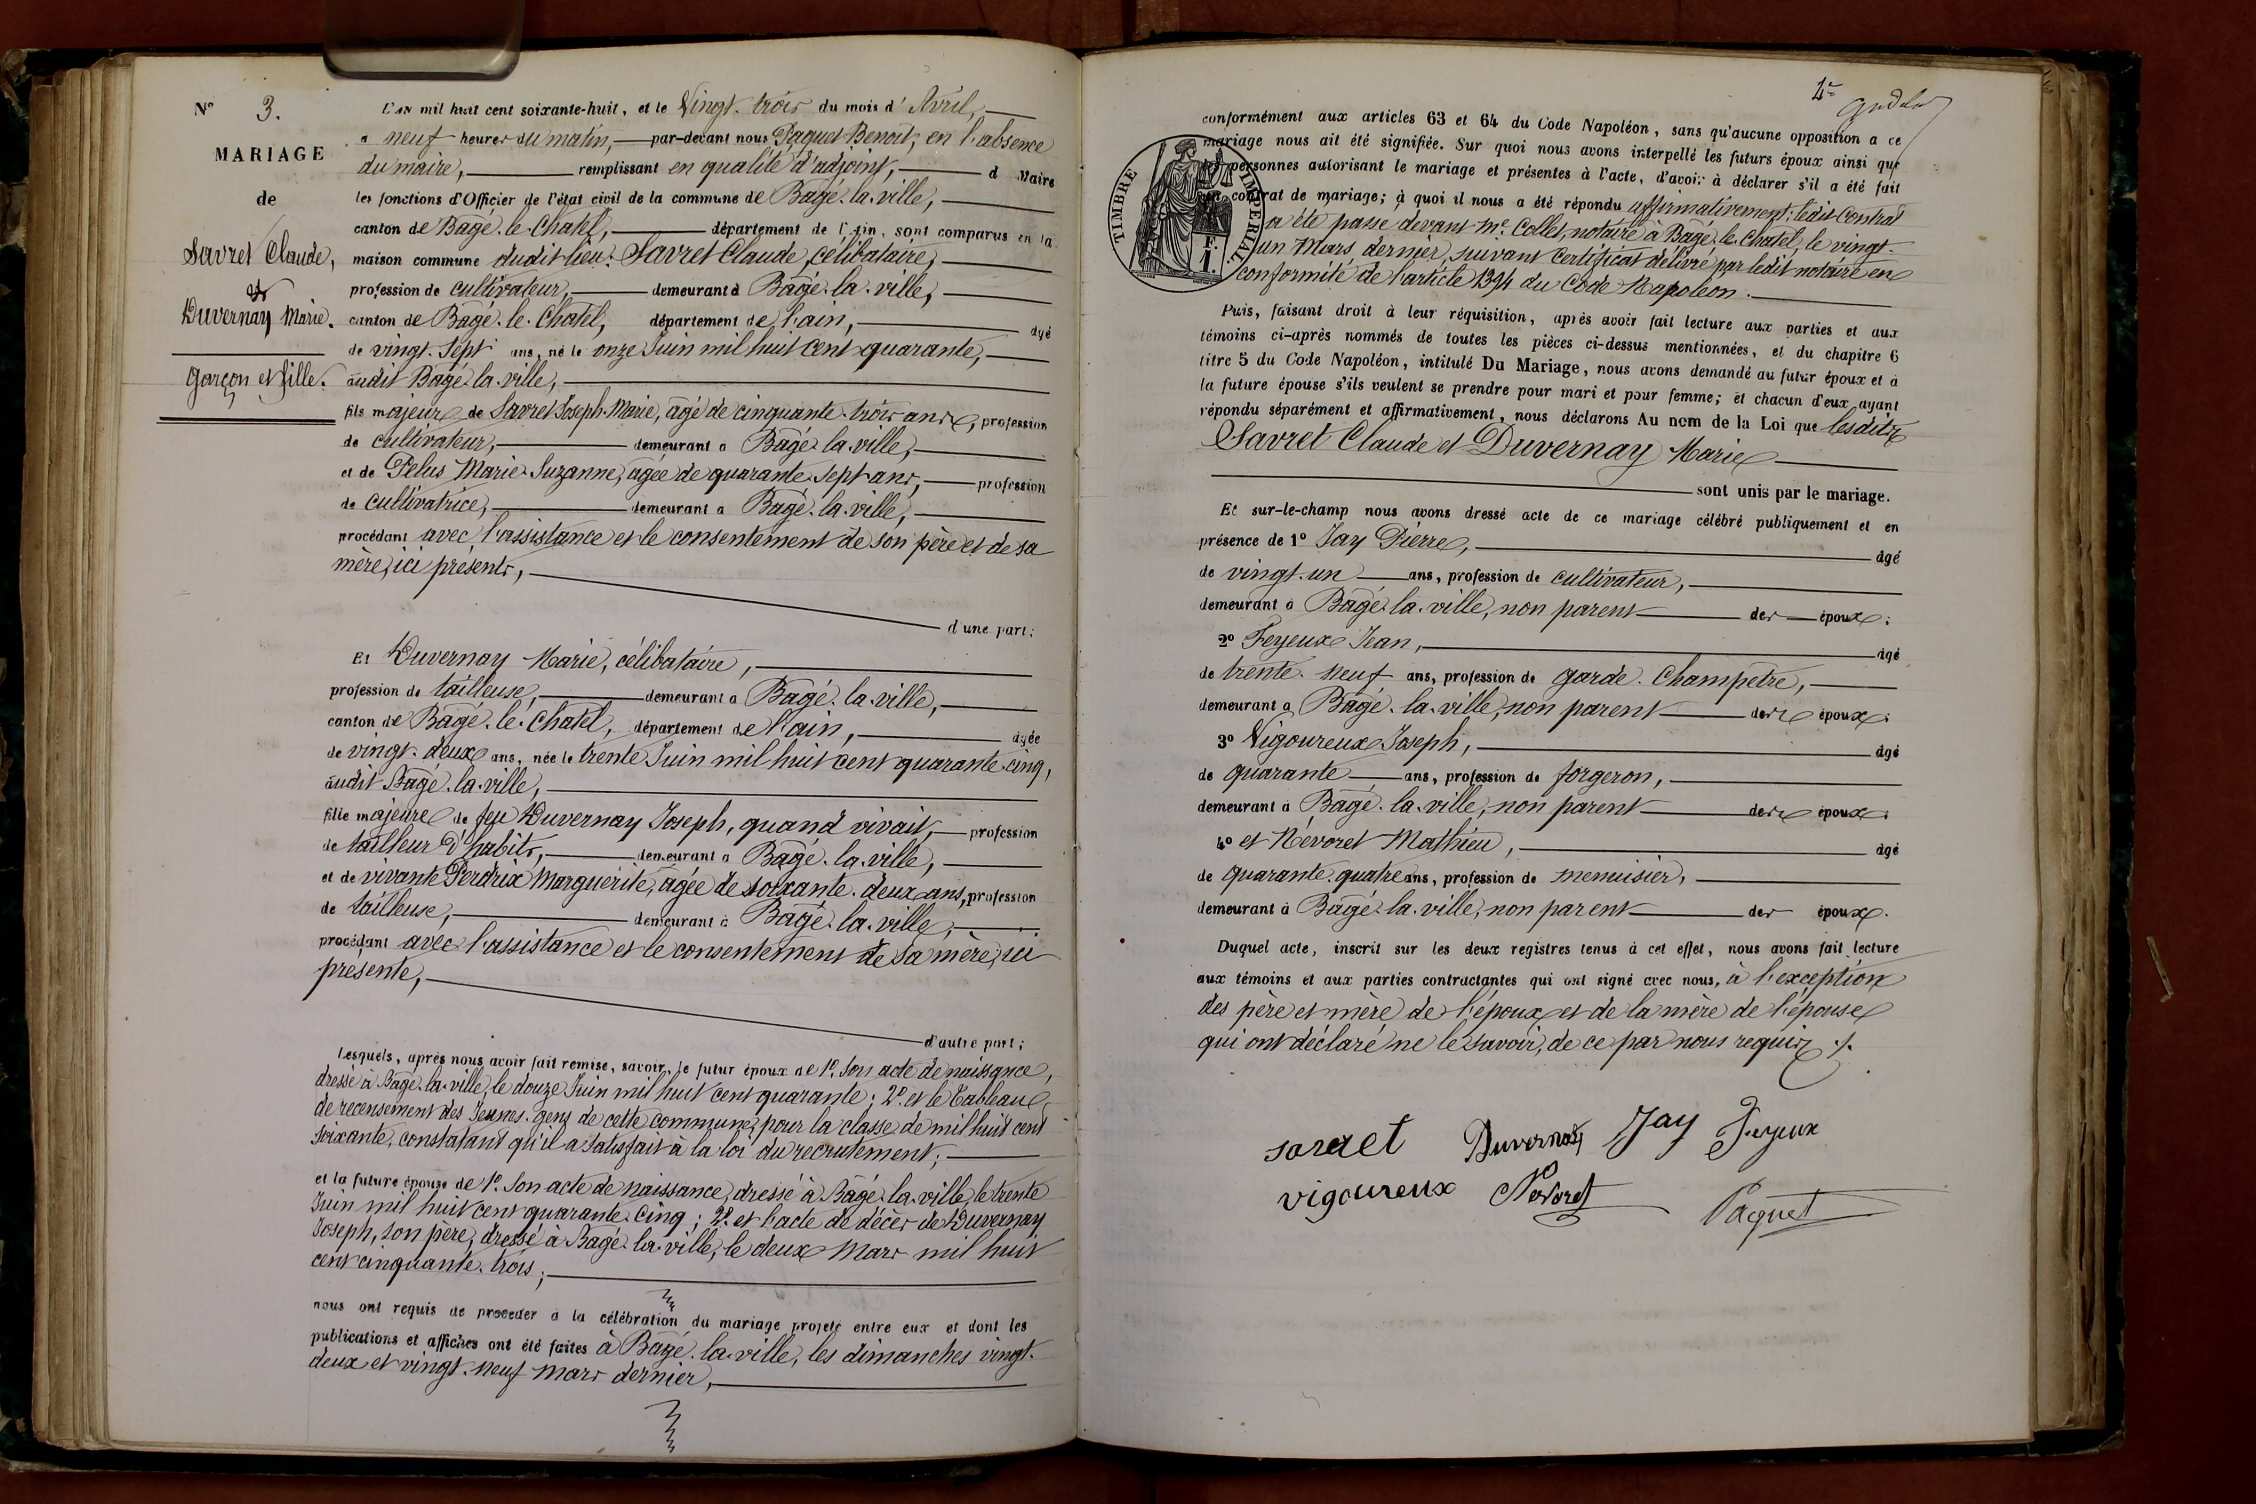 N° 3.
MARIAGE
de
Savret Claude,
&
Duvernay Marie.
Garçon et fille.
L'AN mil huit cent soixante-huit, et le Vingt-trois du mois d'Avril,
a neuf heures du matin, par-devant nous Paquet Benoit, en l'absence
du maire, remplissant en qualité d'adjoint, d Maire
les fonctions d'Officier de l'état civil de la commune de Bâgé-la-ville,
canton de Bâgé-le-Chatel, département de l'Ain, sont comparus en la
maison commune dudit lieu: Savret Claude, célibataire,
profession de cultivateur, demeurant à Bâgé-la-ville,
canton de Bâgé-le-Chatel, département de l'ain, âgé
de vingt-sept ans, né le onze Juin mil huit cent quarante,
audit Bâgé-la-ville,
fils majeur de Savret Joseph-Marie, âgé de cinquante-trois ans, profession
de cultivateur, demeurant à Bâgé-la-ville,
et de Pelus Marie-Suzanne, âgée de quarante-sept ans, profession
de cultivatrice, demeurant à Bâgé-la-ville,
procédant avec l'assistance et le consentement de son père et de sa
mère, ici présents,
d'une part;
Et Duvernay Marie, célibataire,
profession de tailleuse, demeurant à Bâgé-la-ville,
canton de Bâgé-le-Chatel, département de l'ain, âgée
de vingt-deux ans, née le trente Juin mil huit cent quarante-cinq,
audit Bâgé-la-ville,
fille majeure de feu Duvernay Joseph, quand vivait, profession
de tailleur d'habits, demeurant à Bâgé-la-ville,
et de vivante Perdrix Marguerite, âgée de soixante-deux ans, profession
de tailleuse, demeurant à Bâgé-la-ville,
procédant avec l'assistance et le consentement de sa mère, ici
présente,
d'autre part;
Lesquels, après nous avoir fait remise, savoir, le futur époux de 1°. Son acte de naissance,
dressé à Bâgé-la-ville, le douze Juin mil huit cent quarante; 2°. et le Tableau
de recensement des Jeunes-gens de cette commune, pour la classe de mil huit cent
soixante, constatant qu'il a satisfait à la loi du recrutement;
et la future épouse de 1°. Son acte de naissance, dressé à Bâgé-la-ville, le trente
Juin mil huit cent quarante-cinq; 2°. et l'acte de décès de Duvernay
Joseph, son père, dressé à Bâgé-la-ville, le deux Mars mil huit
cent cinquante-trois;
nous ont requis de procéder à la célébration du mariage projeté entre eux et dont les
publications et affiches ont été faites à Bâgé-la-ville, les dimanches vingt-
deux et vingt-neuf mars dernier,
conformément aux articles 63 et 64 du Code Napoléon, sans qu'aucune opposition a ce
mariage nous ait été signifiée. Sur quoi nous avons interpellé les futurs époux ainsi que
les personnes autorisant le mariage et présentes à l'acte, d'avoir à déclarer s'il a été fait
un contrat de mariage; à quoi il nous a été répondu affirmativement; ledit Contrat
a été passé devant Me. Collet, notaire à Bâgé-le-Chatel, le vingt-
un Mars dernier, suivant Certificat délivré par ledit notaire en
conformité de l'article 1394 du Code Napoléon.
TIMBRE IMPERIAL.
1 F.
Puis, faisant droit à leur réquisition, après avoir fait lecture aux parties et aux
témoins ci-après nommés de toutes les pièces ci-dessus mentionnées, et du chapitre 6
titre 5 du Code Napoléon, intitulé Du Mariage, nous avons demandé au futur époux et à
la future épouse s'ils veulent se prendre pour mari et pour femme; et chacun d'eux ayant
répondu séparément et affirmativement, nous déclarons Au nom de la Loi que lesdits
Savret Claude et Duvernay Marie
sont unis par le mariage.
Et sur-le-champ nous avons dressé acte de ce mariage célébré publiquement et en
présence de 1° Jay Pierre, âgé
de vingt-un ans, profession de cultivateur,
demeurant à Bâgé-la-ville, non parent des époux;
2° Feyeux Jean, âgé
de trente-neuf ans, profession de garde-Champêtre,
demeurant à Bâgé-la-ville, non parent des époux;
3° Vigoureux Joseph, âgé
de quarante ans, profession de forgeron,
demeurant à Bâgé-la-ville, non parent des époux;
4° et Névoret Mathieu, âgé
de quarante-quatre ans, profession de menuisier,
demeurant à Bâgé-la-ville, non parent des époux.
Duquel acte, inscrit sur les deux registres tenus à cet effet, nous avons fait lecture
aux témoins et aux parties contractantes qui ont signé avec nous, à l'exception
des père et mère de l'époux et de la mère de l'épouse
qui ont déclaré ne le savoir, de ce par nous requis ./.
savret Duvernay Jay Feyeux
vigoureux Névoret Paquet